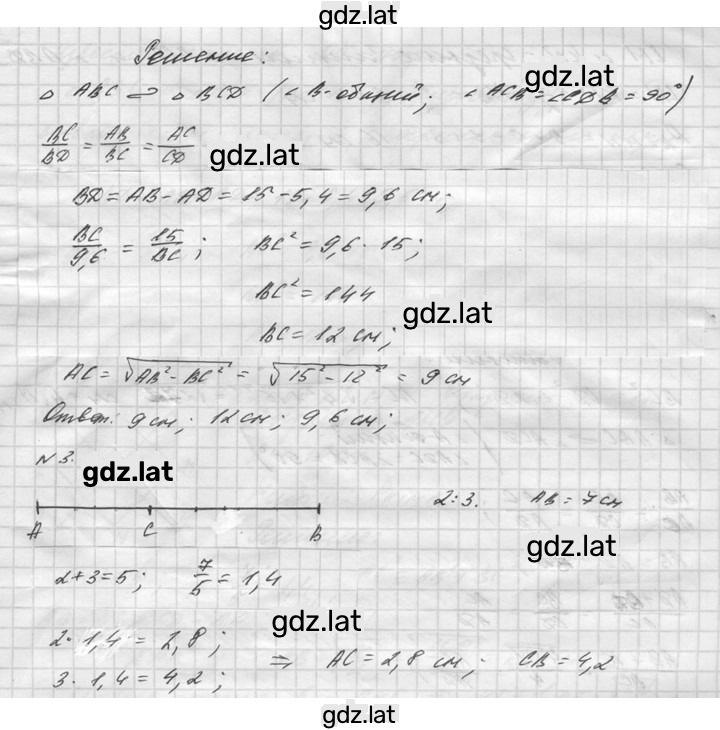 gdz.lat
Решение:
△ ABC ∽ △ BCD (∠ B-общий; ∠ ACB = ∠CDB = 90°)
gdz.lat
BC/BD = AB/BC = AC/CD
gdz.lat
BD = AB - AD = 15 - 5,4 = 9,6 см;
BC/9,6 = 15/BC; BC² = 9,6 · 15;
BC² = 144
gdz.lat
BC = 12 см;
AC = √AB² - BC² = √15² - 12² = 9 см
Ответ: 9 см; 12 см; 9,6 см;
N 3.
gdz.lat
2:3. AB = 7 см
A C B
gdz.lat
2+3=5; 7/5 = 1,4
gdz.lat
2 · 1,4 = 2,8;
⇒ AC = 2,8 см; CB = 4,2
3 · 1,4 = 4,2;
gdz.lat